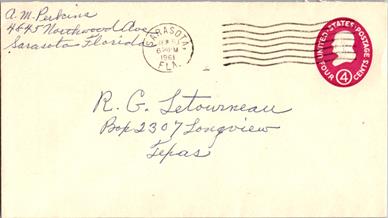 A. M. Perkins
4645 Northwood Ave
Sarasota Florida
SARASOTA,
6 PM
1961
FLA.
UNITED STATES POSTAGE
FOUR 4 CENTS
R. G. Letourneau
Box 2307 Longview
Texas